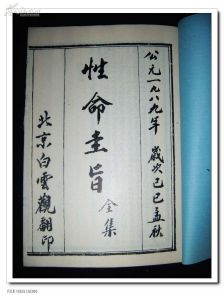 公元一九八九年 歲次己巳孟秋
性命圭旨
全集
北京白雲觀翻印